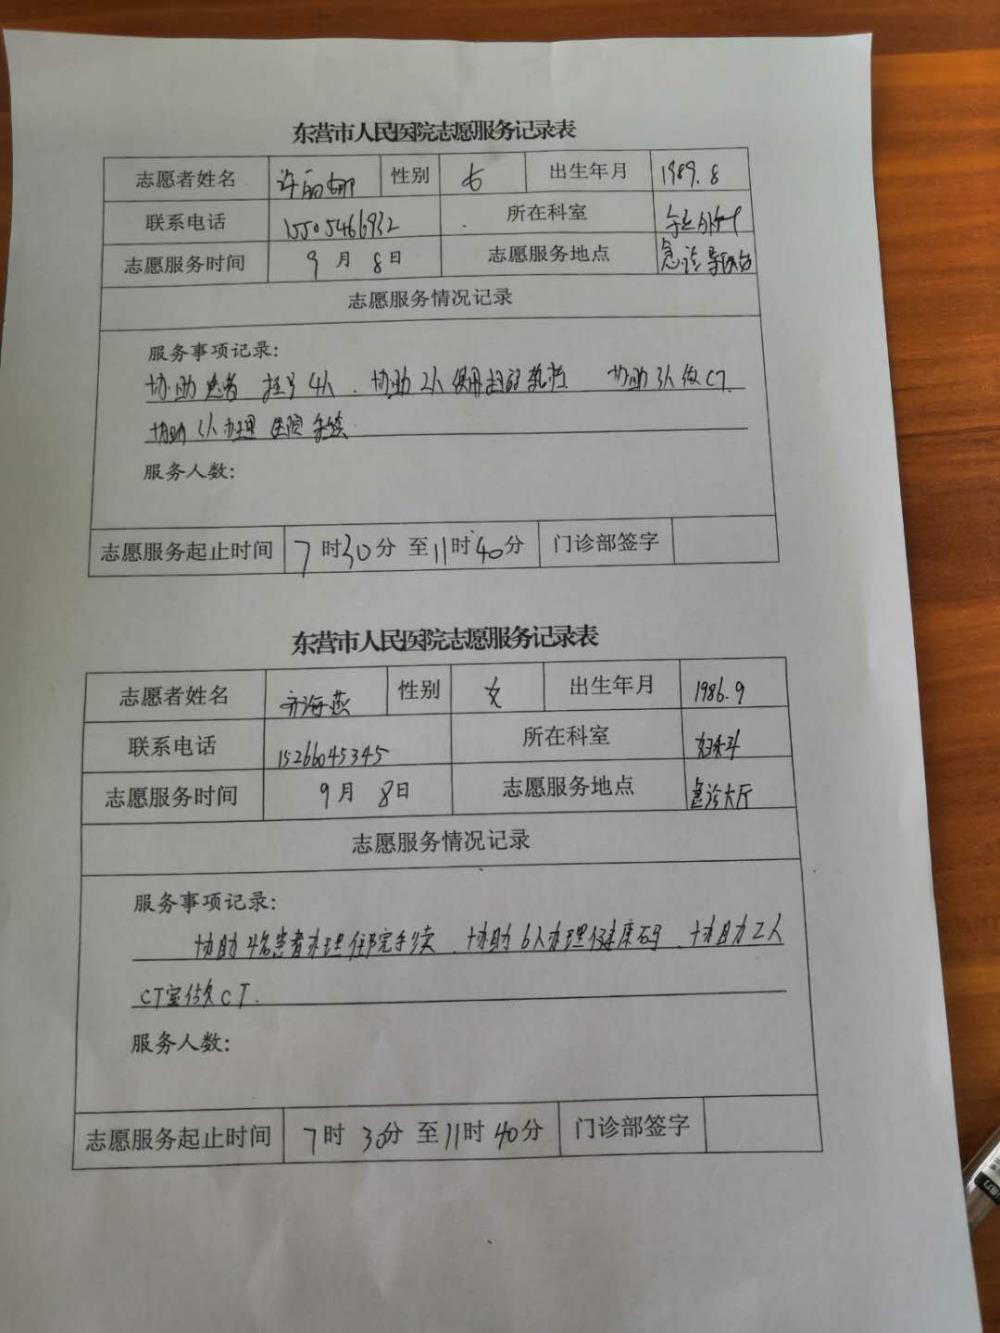 东营市人民医院志愿服务记录表
志愿者姓名 许丽娜 性别 女 出生年月 1989.8
联系电话 15505466932 所在科室
志愿服务时间 9月8日 志愿服务地点 急诊
志愿服务情况记录
服务事项记录:
协助患者挂号4人、协助2人使用 协助3人做CT.
协助 人办理住院手续
服务人数:
志愿服务起止时间 7时30分至11时40分 门诊部签字
东营市人民医院志愿服务记录表
志愿者姓名 齐海燕 性别 女 出生年月 1986.9
联系电话 15266045345 所在科室
志愿服务时间 9月8日 志愿服务地点 急诊大厅
志愿服务情况记录
服务事项记录:
协助4名患者办理住院手续、协助6人办理健康码、协助2人
CT室做CT.
服务人数:
志愿服务起止时间 7时30分至11时40分 门诊部签字